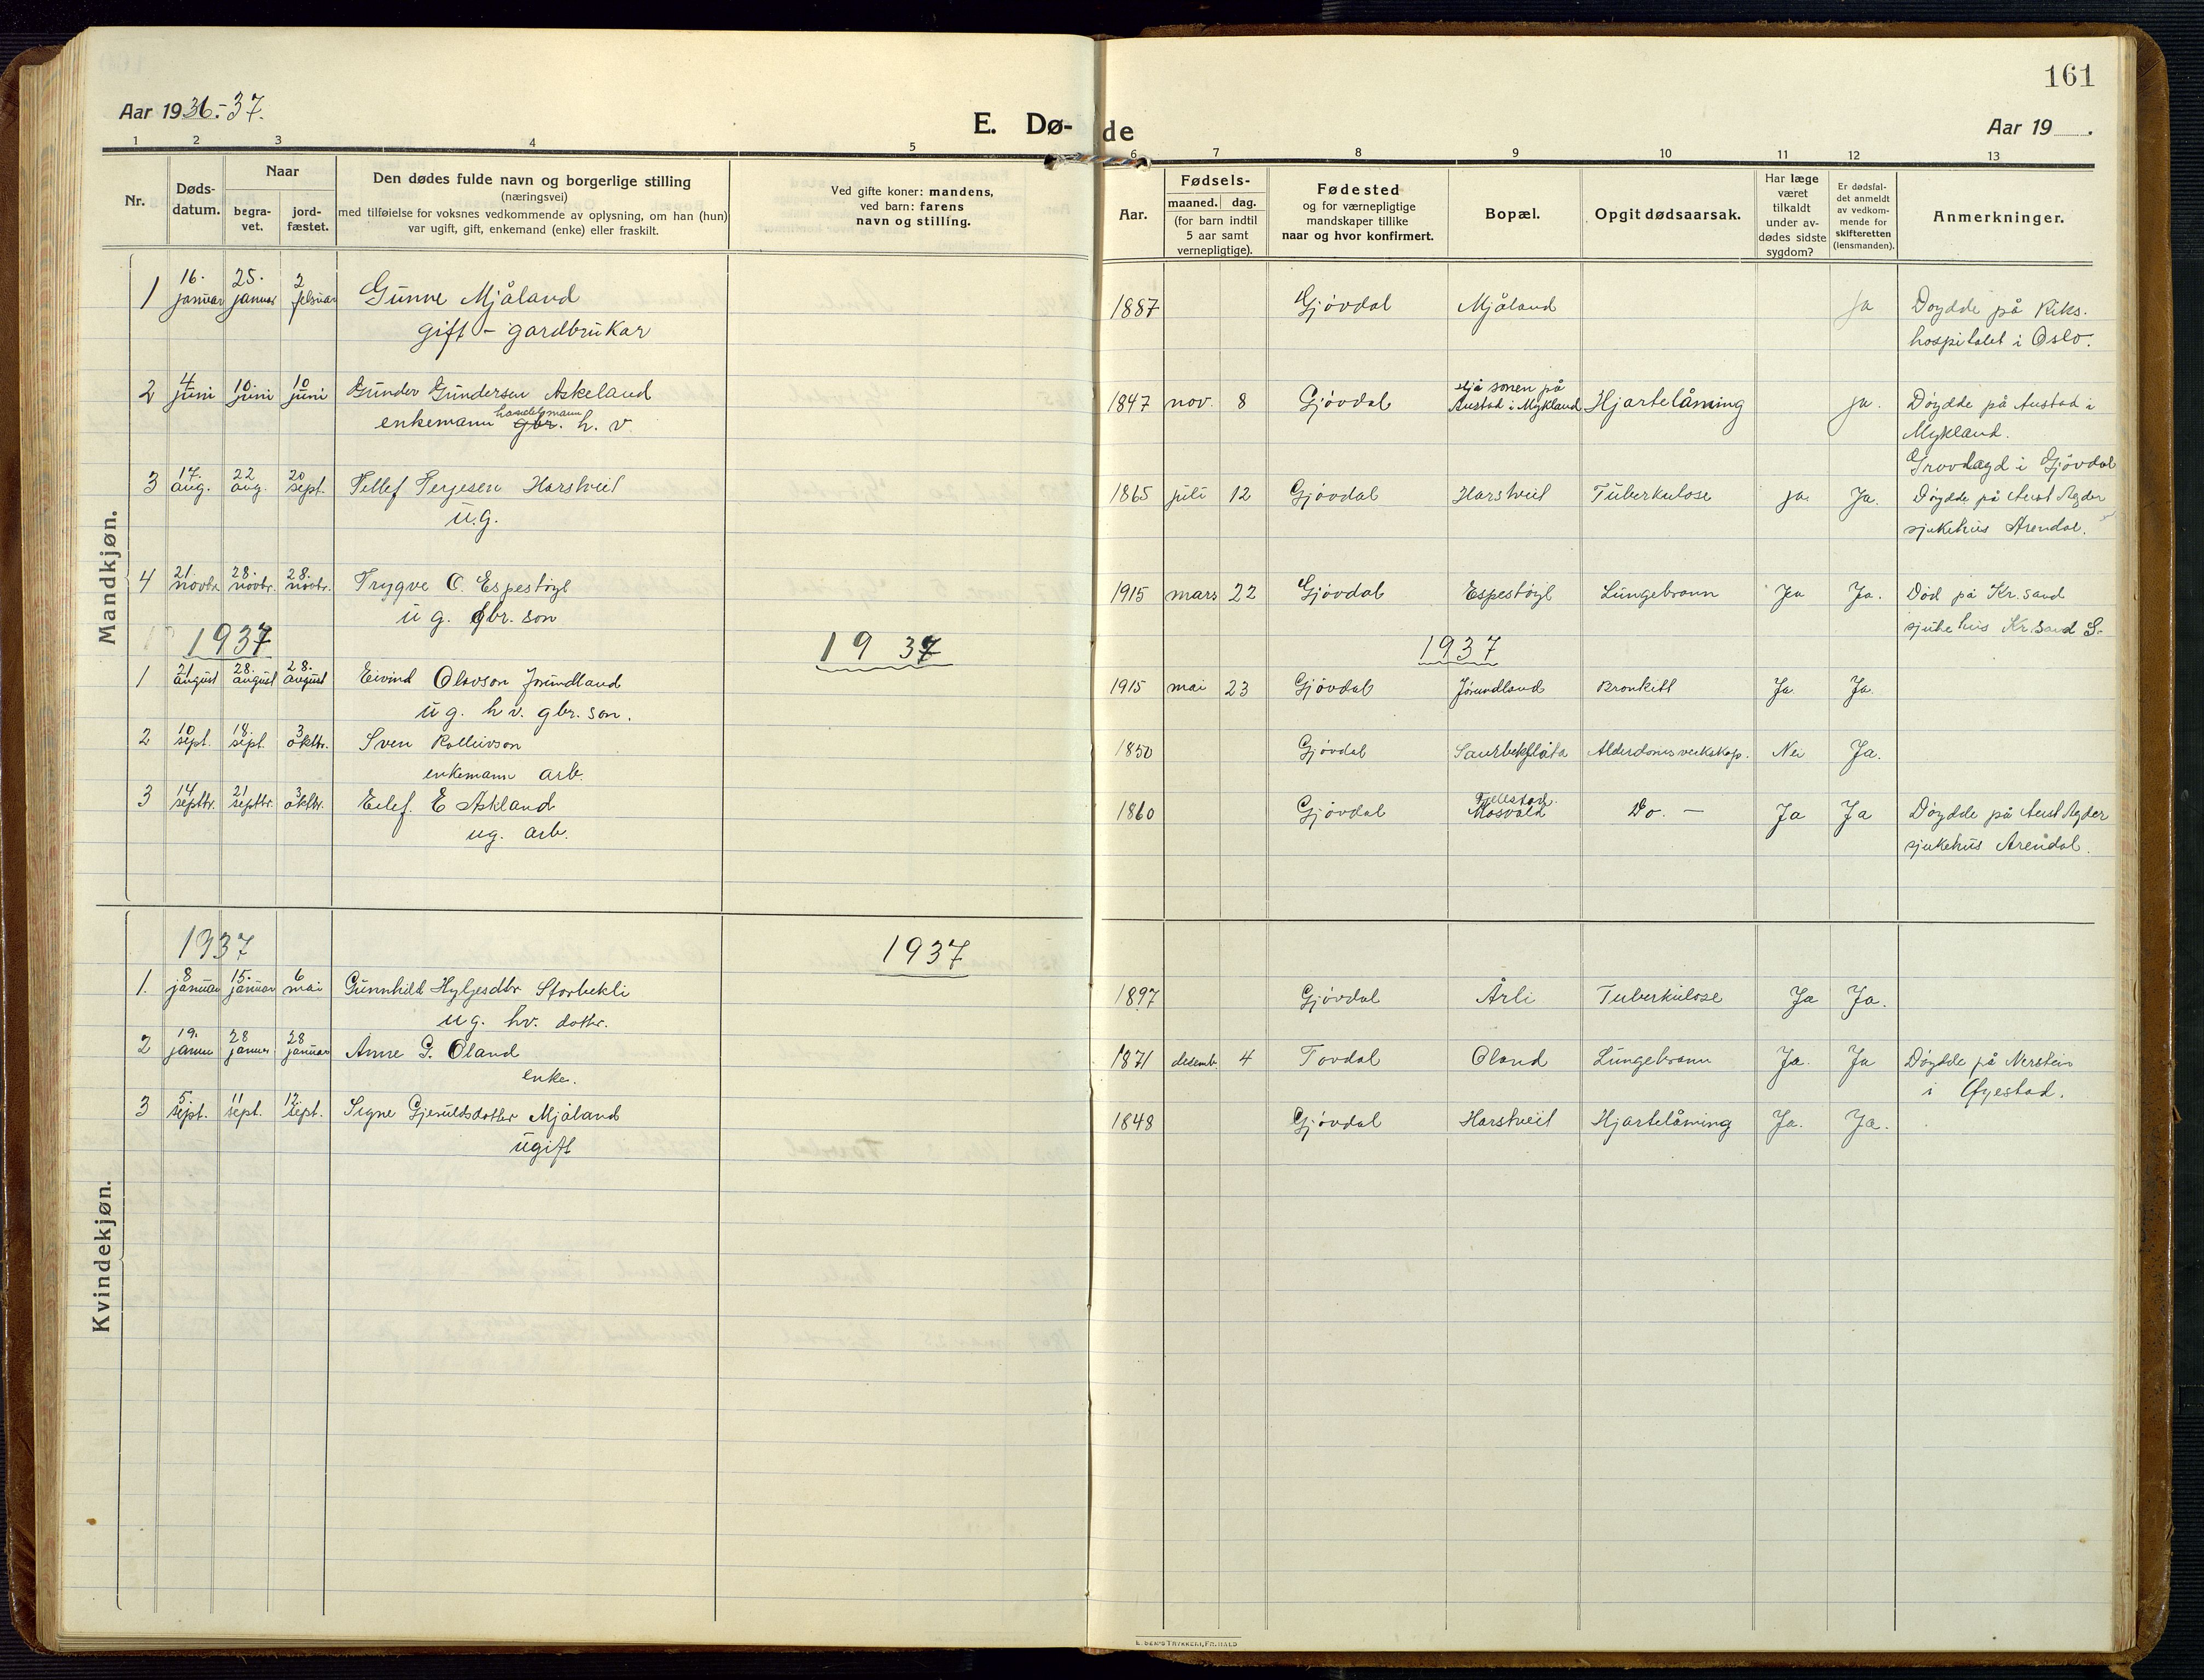 161
Aar 1936.-37.
E. Dø-de
Aar 19 .
1 2 3 4 5 6 7 8 9 10 11 12 13
Nr.
Døds-
datum.
Naar
begra-
vet.
jord-
fæstet.
Den dødes fulde navn og borgerlige stilling
(næringsvei)
med tilføielse for voksnes vedkommende av oplysning, om han (hun)
var ugift, gift, enkemand (enke) eller fraskilt.
Ved gifte koner: mandens,
ved barn: farens
navn og stilling.
Aar.
Fødsels-
maaned. dag.
(for barn indtil
5 aar samt
vernepligtige).
Fødested
og for værnepligtige
mandskaper tillike
naar og hvor konfirmert.
Bopæl.
Opgit dødsaarsak.
Har læge
været
tilkaldt
under av-
dødes sidste
sygdom?
Er dødsfal-
det anmeldt
av vedkom-
mende for
skifteretten
(lensmanden).
Anmerkninger.
Mandkjøn.
1 16. januar 25. januar 2 februar Gunne Mjåland 1887 Gjövdal Mjåland ja Döydde på Riks.
gift - gardbrukar hospitalet i Oslo.
2 4 juni 10. juni 10 juni Gunder Gundersen Askeland 1847 nov. 8 Gjövdal Hjå sonen på Austad i Mykland Hjartelåming ja. Döydde på Austad i
enkemann gbr. handelsmann h. v. Mykland.
Gravlagd i Gjövdal
3 17. aug. 22 aug. 20 sept. Tellef Terjesen Harstveit 1865 juli 12 Gjövdal Harstveit Tuberkulose ja Ja. Döydde på Aust Agder
u.g. sjukehus Arendal.
4 21 novbr. 28. novbr. 28. novbr. Trygve O. Espestöyl 1915 mars 22 Gjövdal Espestöyl Lungebrann Ja Ja. Död på Kr.sand
u g. gbr. son sjukehus Kr.sand S.
1937 1937 1937
1 21 august 28. august 28. august Eivind Olavson Jörundland 1915 mai 23 Gjövdal Jörundland Bronkitt Ja. Ja.
u g. h v. gbr. son.
2 10 sept. 18. sept. 3 oktbr. Sven Rolleivson 1850 Gjövdal Saurbekflåta Alderdomsveikskap. Nei Ja.
enkemann arb.
3 14 septbr. 21 septbr. 3 oktbr. Eilef. E Askland 1860 Gjövdal Mosvald Do. - Ja Ja Döydde på Aust Agder
ug. arb. sjukehus Arendal.
Kvindekjøn.
1937 1937
1. 8 januar 15. januar 6 mai Gunnhild Hylgesdtr Storbekli 1897 Gjövdal Årli Tuberkulose Ja Ja.
ug. hv. dotter.
2 19. januar 28 januar 28 januar Anne G. Öland 1871 desemb. 4 Tovdal Öland Lungebrann Ja. Ja Döydde på Nerstein
enke. i Öyestad.
3 5. sept. 11 sept. 12. sept. Signe Gjeruldsdotter Mjåland 1848 Gjövdal Harstveit Hjartelåming Ja. Ja.
ugift